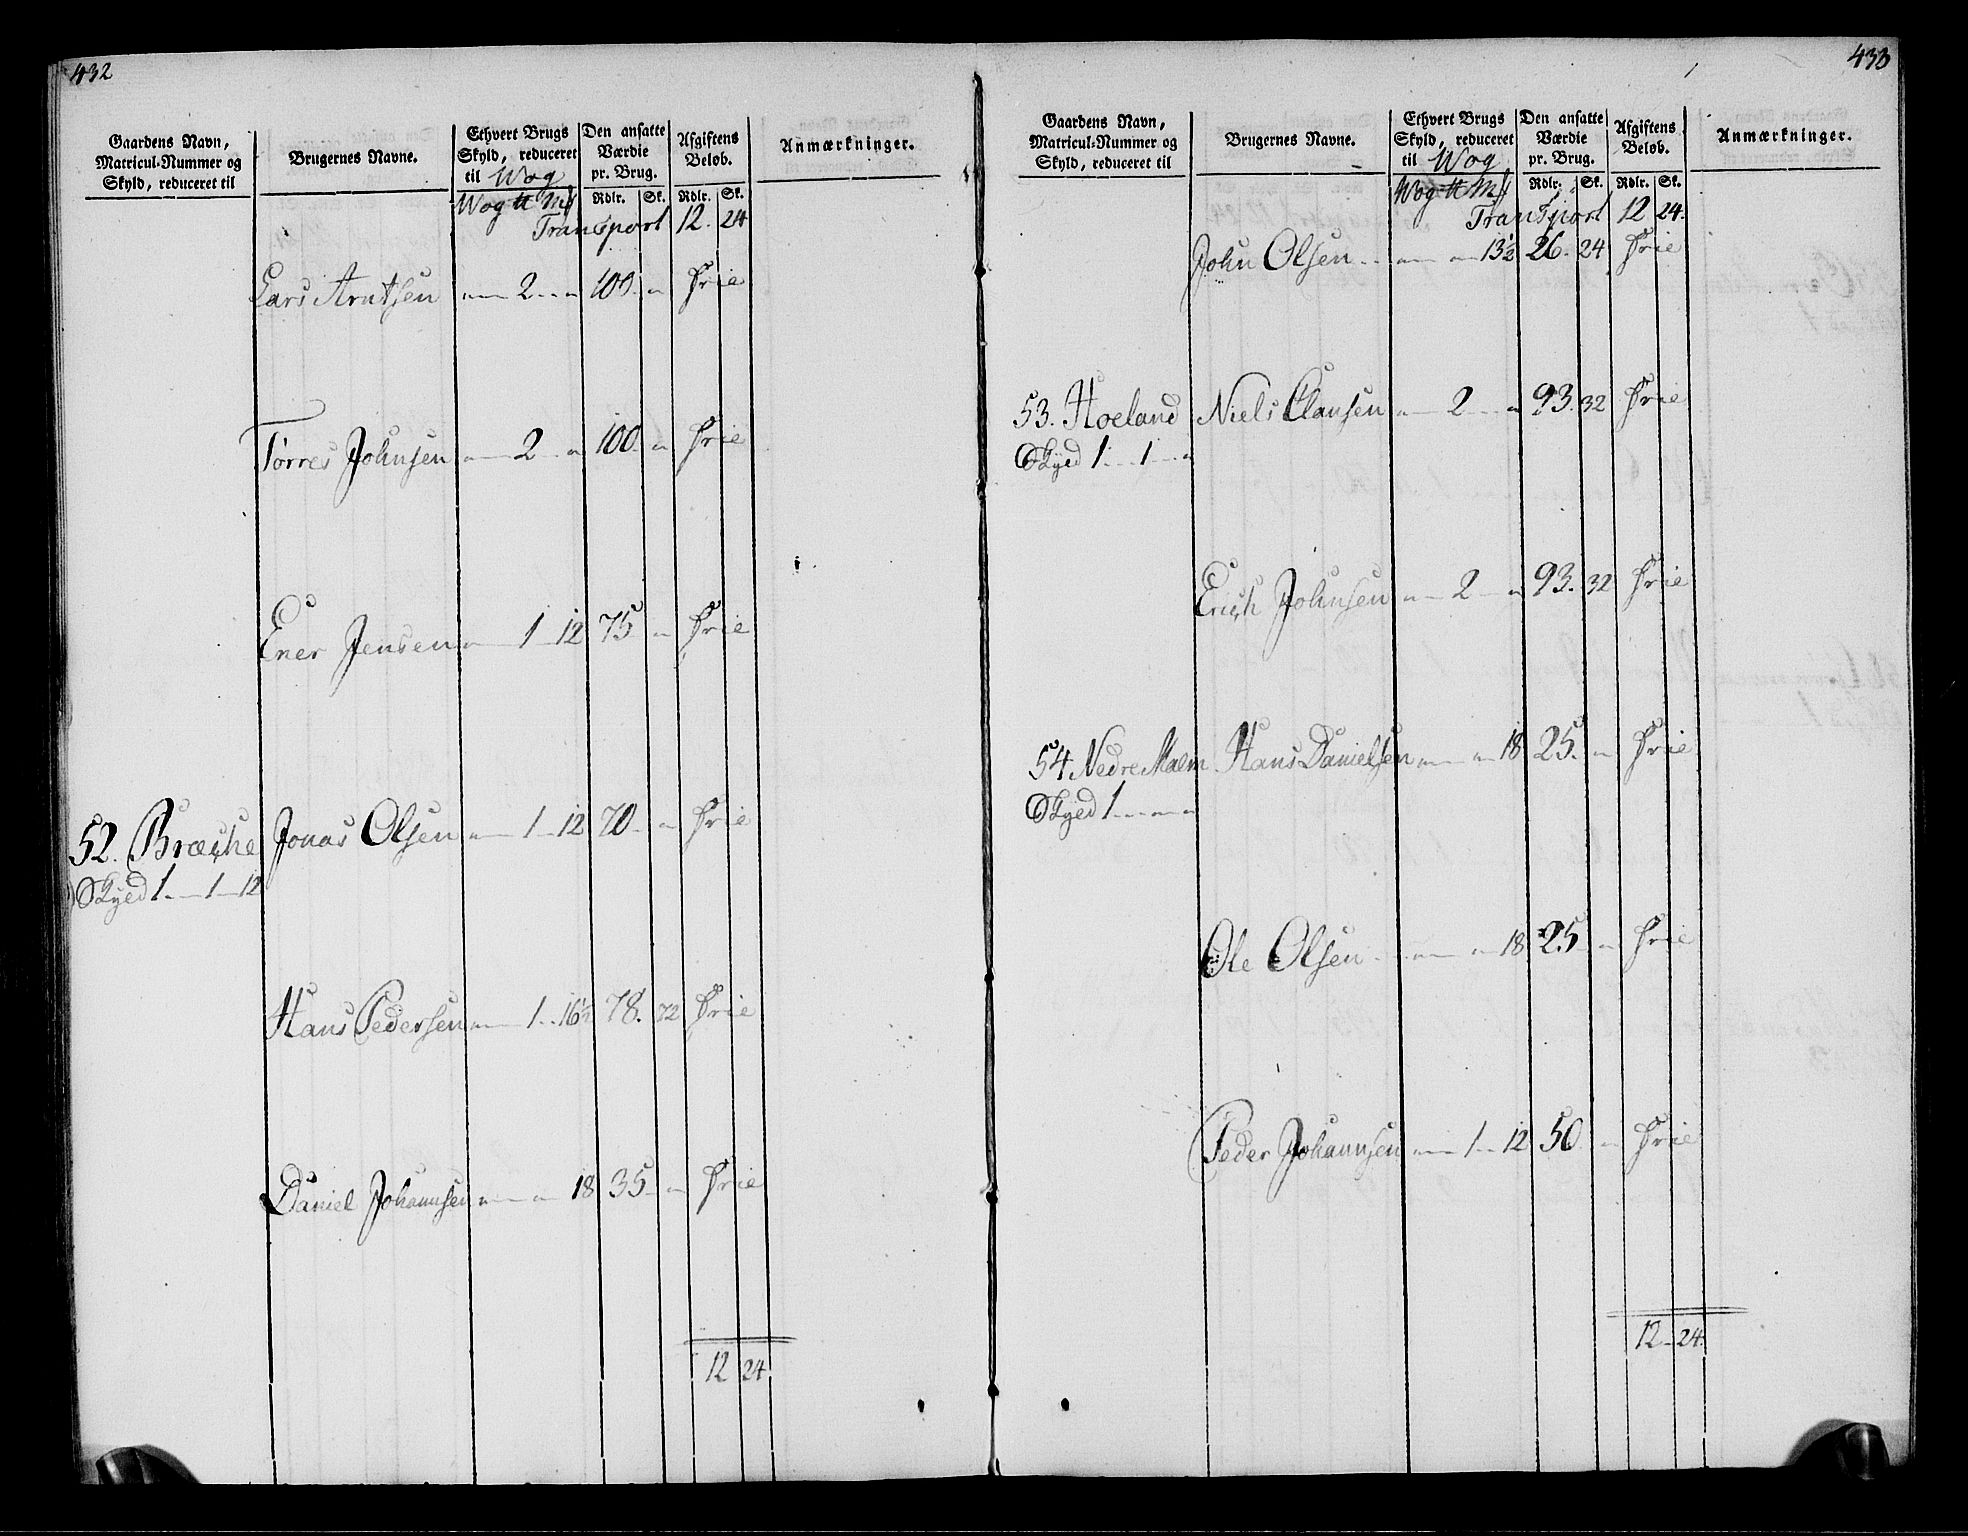 432
Gaardens Navn, Matricul-Nummer og Skyld, reduceret til
Brugernes Navne.
Ethvert Brugs Skyld, reduceret til Wog
Den ansatte Værdie pr. Brug.
Afgiftens Beløb.
Anmærkninger.
Wog ℔ Mk Rdlr. Sk. Rdlr. Sk.
Transport 12. 24
Lars Arntsen 2 100. Frie
Törres Johnsen 2 100. Frie
Ener Jensen 1 12 75 Frie
52. Bræche Jonas Olsen 1 12 70. Frie
Skyld 1 1 12
Hans Pedersen 1 16½ 78. 72 Frie
Daniel Johannsen 18 35 Frie
12 24
433
Gaardens Navn, Matricul-Nummer og Skyld, reduceret til
Brugernes Navne.
Ethvert Brugs Skyld, reduceret til Wog
Den ansatte Værdie pr. Brug.
Afgiftens Beløb.
Anmærkninger.
Wog ℔ Mk Rdlr. Sk. Rdlr. Sk.
Transport 12 24.
John Olsen 13½ 26. 24 Frie
53. Hoeland Niels Clausen 2 93. 32 Frie
Skyld 1 1
Erich Johnsen 2 93. 32 Frie
54 Nedre Malm Hans Danielsen 18 25. Frie
Skyld 1
Ole Olsen 18 25 Frie
Peder Johannsen 1 12 50 Frie
12 24.